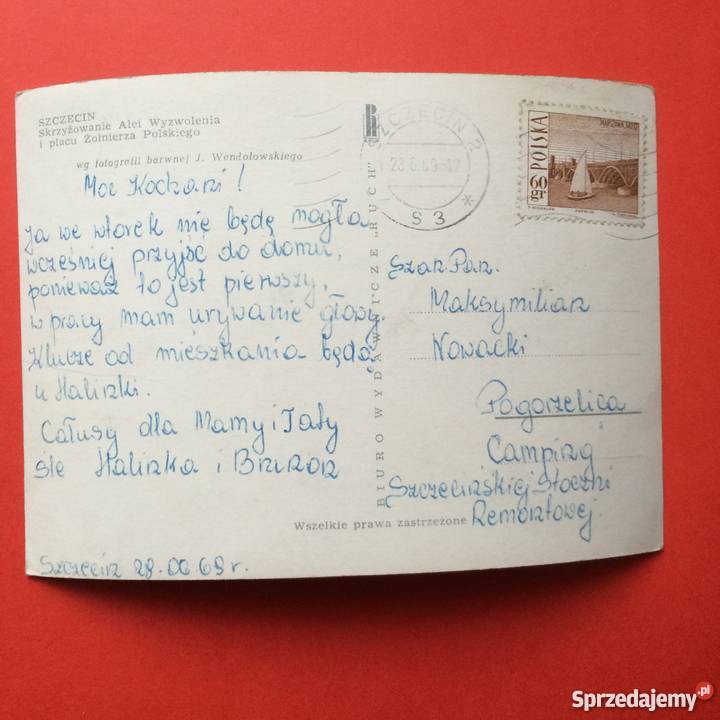 SZCZECIN
Skrzyżowanie Alei Wyzwolenia
i placu Żołnierza Polskiego
wg fotografii barwnej J. Wendołowskiego
Moi Kochani!
Ja we wtorek nie będę mogła
wcześniej przyjść do domu,
ponieważ to jest pierwszy,
w pracy mam urywanie głowy.
Klucze od mieszkania będą
u Halinki.
Całusy dla Mamy i Taty
śle Halinka i
Szczecin 28.06.69 r.
BIURO WYDAWNICZE „RUCH"
SZCZECIN 2
28.6.69-12
S 3 *
POLSKA
60 gr
Szan. Pan.
Maksymilian
Nowacki
Pogorzelica
Camping
Szczecińskiej Stoczni
Remontowej.
Wszelkie prawa zastrzeżone
Sprzedajemy.pl